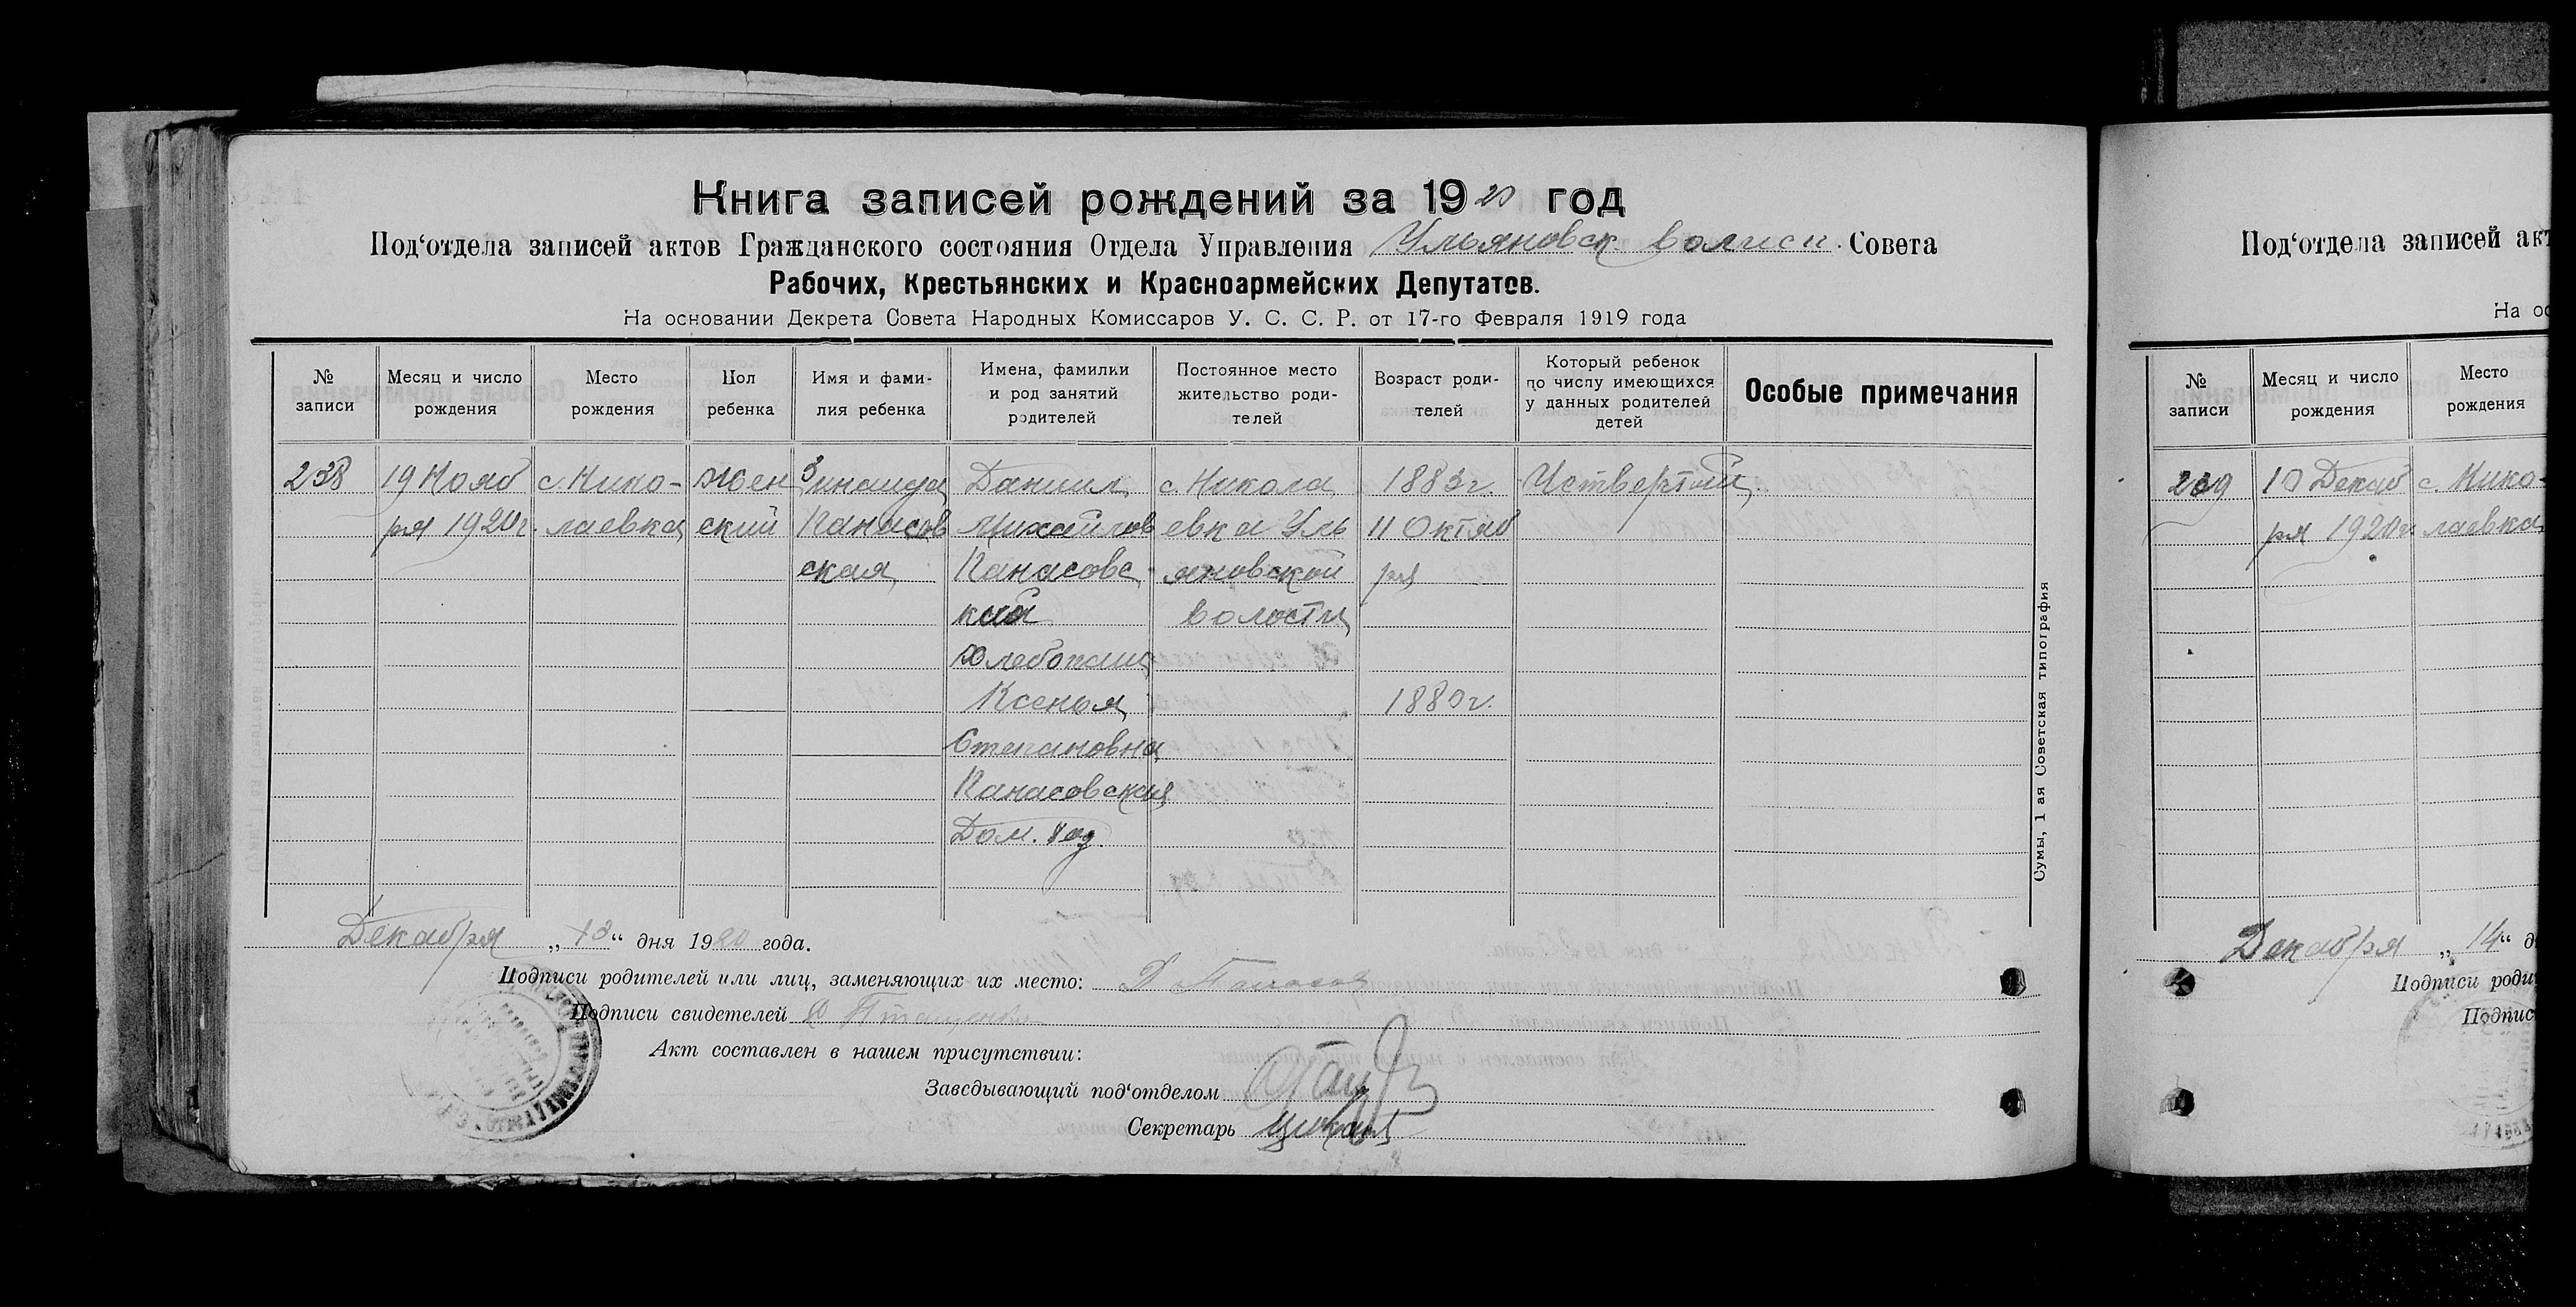 Книга записей рождений за 1920 год
Под‘отдела записей актов Гражданского состояния Отдела Управления Ульяновск. волиси. Совета
Рабочих, Крестьянских и Красноармейских Депутатов.
На основании Декрета Совета Народных Комиссаров У. С. С. Р. от 17-го Февраля 1919 года
№ записи
Месяц и число рождения
Место рождения
Пол ребенка
Имя и фами-
лия ребенка
Имена, фамилии
и род занятий
родителей
Постоянное место
жительство роди-
телей
Возраст роди-
телей
Который ребенок
по числу имеющихся
у данных родителей
детей
Особые примечания
238
19 Нояб
ря 1920г.
с. Нико-
лаевка
Жен
ский
Зинаида
Панасов
ская
Даниил
Михайлов
Панасовс
кий
Хлебопаш
Ксенья
Степановна
Панасовская
Дом. хоз.
с. Никола
евка Уль
яновской
волости
1883г.
11 Октяб
ря
1880г.
Четвертый
Сумы, 1 ая Советская типография
Декабря „13“ дня 1920 года.
Подписи родителей или лиц, заменяющих их место: Д Панасов
Подписи свидетелей
Акт составлен в нашем присутствии:
Заведывающий под‘отделом
Секретарь
Под‘отдела записей акт
На ос
№ записи
Месяц и число рождения
Место рождения
239
10 Декаб
ря 1920г.
с. Нико-
лаевка
Декабря „14“ д
Подписи роди
Подпис